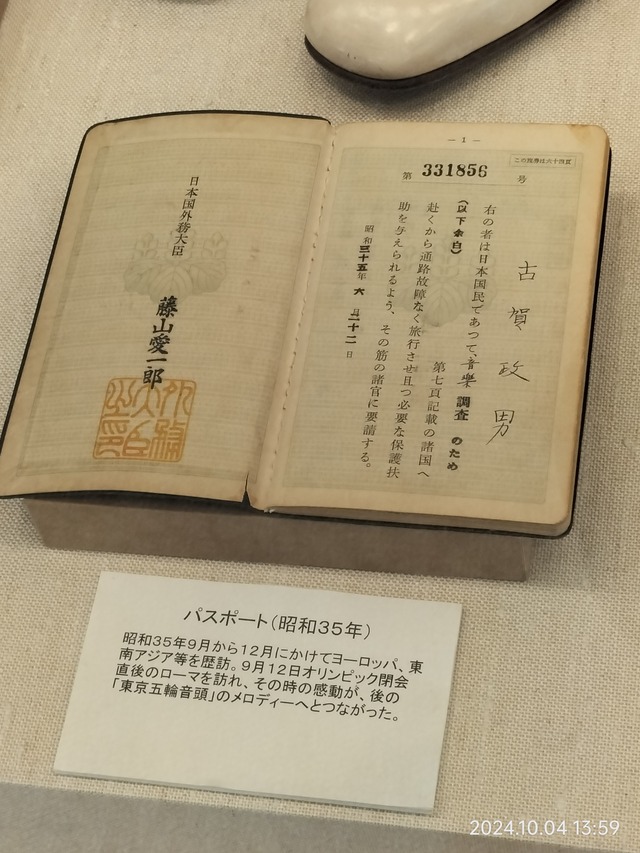 －1－
この旅券は六十四頁
第 331856 号
古賀政男
右の者は日本国民であつて、音楽調査のため
(以下余白) 第七頁記載の諸国へ
赴くから通路故障なく旅行させ且つ必要な保護扶
助を与えられるよう、その筋の諸官に要請する。
昭和三十五年六月二十二日
日本国外務大臣
藤山愛一郎
外務大臣之印
パスポート(昭和35年)
昭和35年9月から12月にかけてヨーロッパ、東
南アジア等を歴訪。9月12日オリンピック閉会
直後のローマを訪れ、その時の感動が、後の
「東京五輪音頭」のメロディーへとつながった。
2024.10.04 13:59